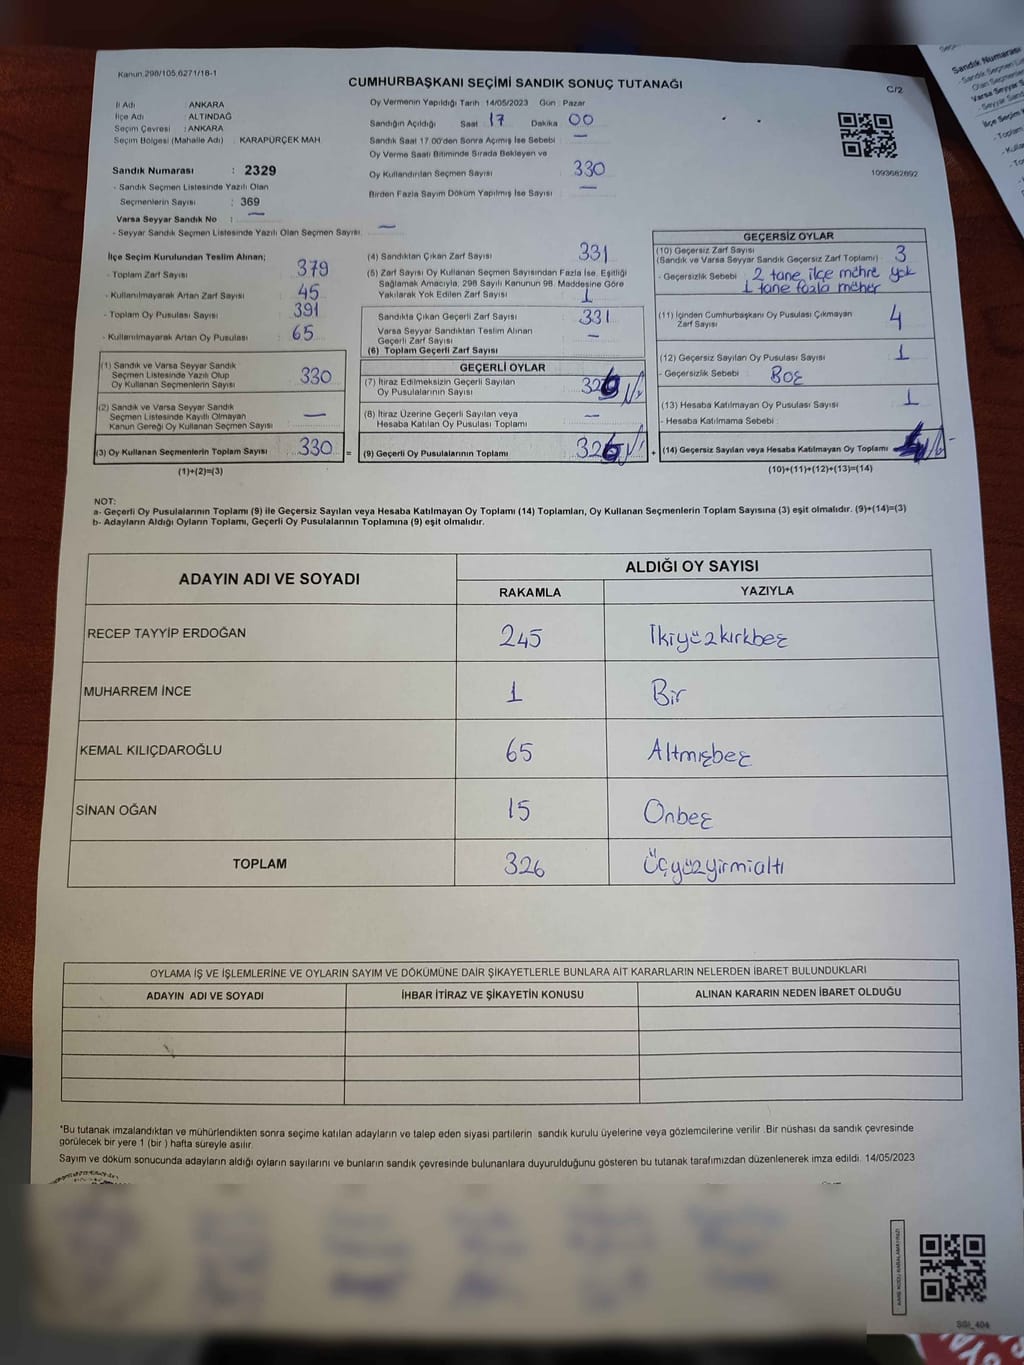 Kanun.298/105,6271/18-1
CUMHURBAŞKANI SEÇİMİ SANDIK SONUÇ TUTANAĞI
C/2
İl Adı : ANKARA
İlçe Adı : ALTINDAĞ
Seçim Çevresi : ANKARA
Seçim Bölgesi (Mahalle Adı) : KARAPÜRÇEK MAH
Sandık Numarası : 2329
- Sandık Seçmen Listesinde Yazılı Olan
Seçmenlerin Sayısı : 369
Varsa Seyyar Sandık No : —
- Seyyar Sandık Seçmen Listesinde Yazılı Olan Seçmen Sayısı: —
Oy Vermenin Yapıldığı Tarih 14/05/2023 Gün : Pazar
Sandığın Açıldığı Saat 17 Dakika 00
Sandık Saat 17.00'den Sonra Açımış İse Sebebi : —
Oy Verme Saati Bitiminde Sırada Bekleyen ve
Oy Kullandırılan Seçmen Sayısı : 330
Birden Fazla Sayım Döküm Yapılmış İse Sayısı : —
1093662692
İlçe Seçim Kurulundan Teslim Alınan;
- Toplam Zarf Sayısı : 379
- Kullanılmayarak Artan Zarf Sayısı : 45
- Toplam Oy Pusulası Sayısı : 391
- Kullanılmayarak Artan Oy Pusulası : 65
(1) Sandık ve Varsa Seyyar Sandık
Seçmen Listesinde Yazılı Olup
Oy Kullanan Seçmenlerin Sayısı : 330
(2) Sandık ve Varsa Seyyar Sandık
Seçmen Listesinde Kayıtlı Olmayan
Kanun Gereği Oy Kullanan Seçmen Sayısı : —
(3) Oy Kullanan Seçmenlerin Toplam Sayısı : 330 =
(1)+(2)=(3)
(4) Sandıktan Çıkan Zarf Sayısı : 331
(5) Zarf Sayısı Oy Kullanan Seçmen Sayısından Fazla İse, Eşitliği
Sağlamak Amacıyla, 298 Sayılı Kanunun 98. Maddesine Göre
Yakılarak Yok Edilen Zarf Sayısı : 1
Sandıkta Çıkan Geçerli Zarf Sayısı : 331
Varsa Seyyar Sandıktan Teslim Alınan
Geçerli Zarf Sayısı : —
(6) Toplam Geçerli Zarf Sayısı
GEÇERLİ OYLAR
(7) İtiraz Edilmeksizin Geçerli Sayılan
Oy Pusulalarının Sayısı : 326
(8) İtiraz Üzerine Geçerli Sayılan veya
Hesaba Katılan Oy Pusulası Toplamı : —
(9) Geçerli Oy Pusulalarının Toplamı : 326 +
GEÇERSİZ OYLAR
(10) Geçersiz Zarf Sayısı
(Sandık ve Varsa Seyyar Sandık Geçersiz Zarf Toplamı) : 3
- Geçersizlik Sebebi : 2 tane ilçe mührü yok
1 tane fazla müher
(11) İçinden Cumhurbaşkanı Oy Pusulası Çıkmayan
Zarf Sayısı : 4
(12) Geçersiz Sayılan Oy Pusulası Sayısı : 1
- Geçersizlik Sebebi : Boş
(13) Hesaba Katılmayan Oy Pusulası Sayısı : 1
- Hesaba Katılmama Sebebi :
(14) Geçersiz Sayılan veya Hesaba Katılmayan Oy Toplamı
(10)+(11)+(12)+(13)=(14)
NOT:
a- Geçerli Oy Pusulalarının Toplamı (9) ile Geçersiz Sayılan veya Hesaba Katılmayan Oy Toplamı (14) Toplamları, Oy Kullanan Seçmenlerin Toplam Sayısına (3) eşit olmalıdır. (9)+(14)=(3)
b- Adayların Aldığı Oyların Toplamı, Geçerli Oy Pusulalarının Toplamına (9) eşit olmalıdır.
ADAYIN ADI VE SOYADI
ALDIĞI OY SAYISI
RAKAMLA YAZIYLA
RECEP TAYYİP ERDOĞAN 245 İkiyüzkırkbeş
MUHARREM İNCE 1 Bir
KEMAL KILIÇDAROĞLU 65 Altmışbeş
SİNAN OĞAN 15 Onbeş
TOPLAM 326 Üçyüzyirmialtı
OYLAMA İŞ VE İŞLEMLERİNE VE OYLARIN SAYIM VE DÖKÜMÜNE DAİR ŞİKAYETLERLE BUNLARA AİT KARARLARIN NELERDEN İBARET BULUNDUKLARI
ADAYIN ADI VE SOYADI İHBAR İTİRAZ VE ŞİKAYETİN KONUSU ALINAN KARARIN NEDEN İBARET OLDUĞU
*Bu tutanak imzalandıktan ve mühürlendikten sonra seçime katılan adayların ve talep eden siyasi partilerin sandık kurulu üyelerine veya gözlemcilerine verilir .Bir nüshası da sandık çevresinde
görülecek bir yere 1 (bir ) hafta süreyle asılır.
Sayım ve döküm sonucunda adayların aldığı oyların sayılarını ve bunların sandık çevresinde bulunanlara duyurulduğunu gösteren bu tutanak tarafımızdan düzenlenerek imza edildi. 14/05/2023
SGI_404